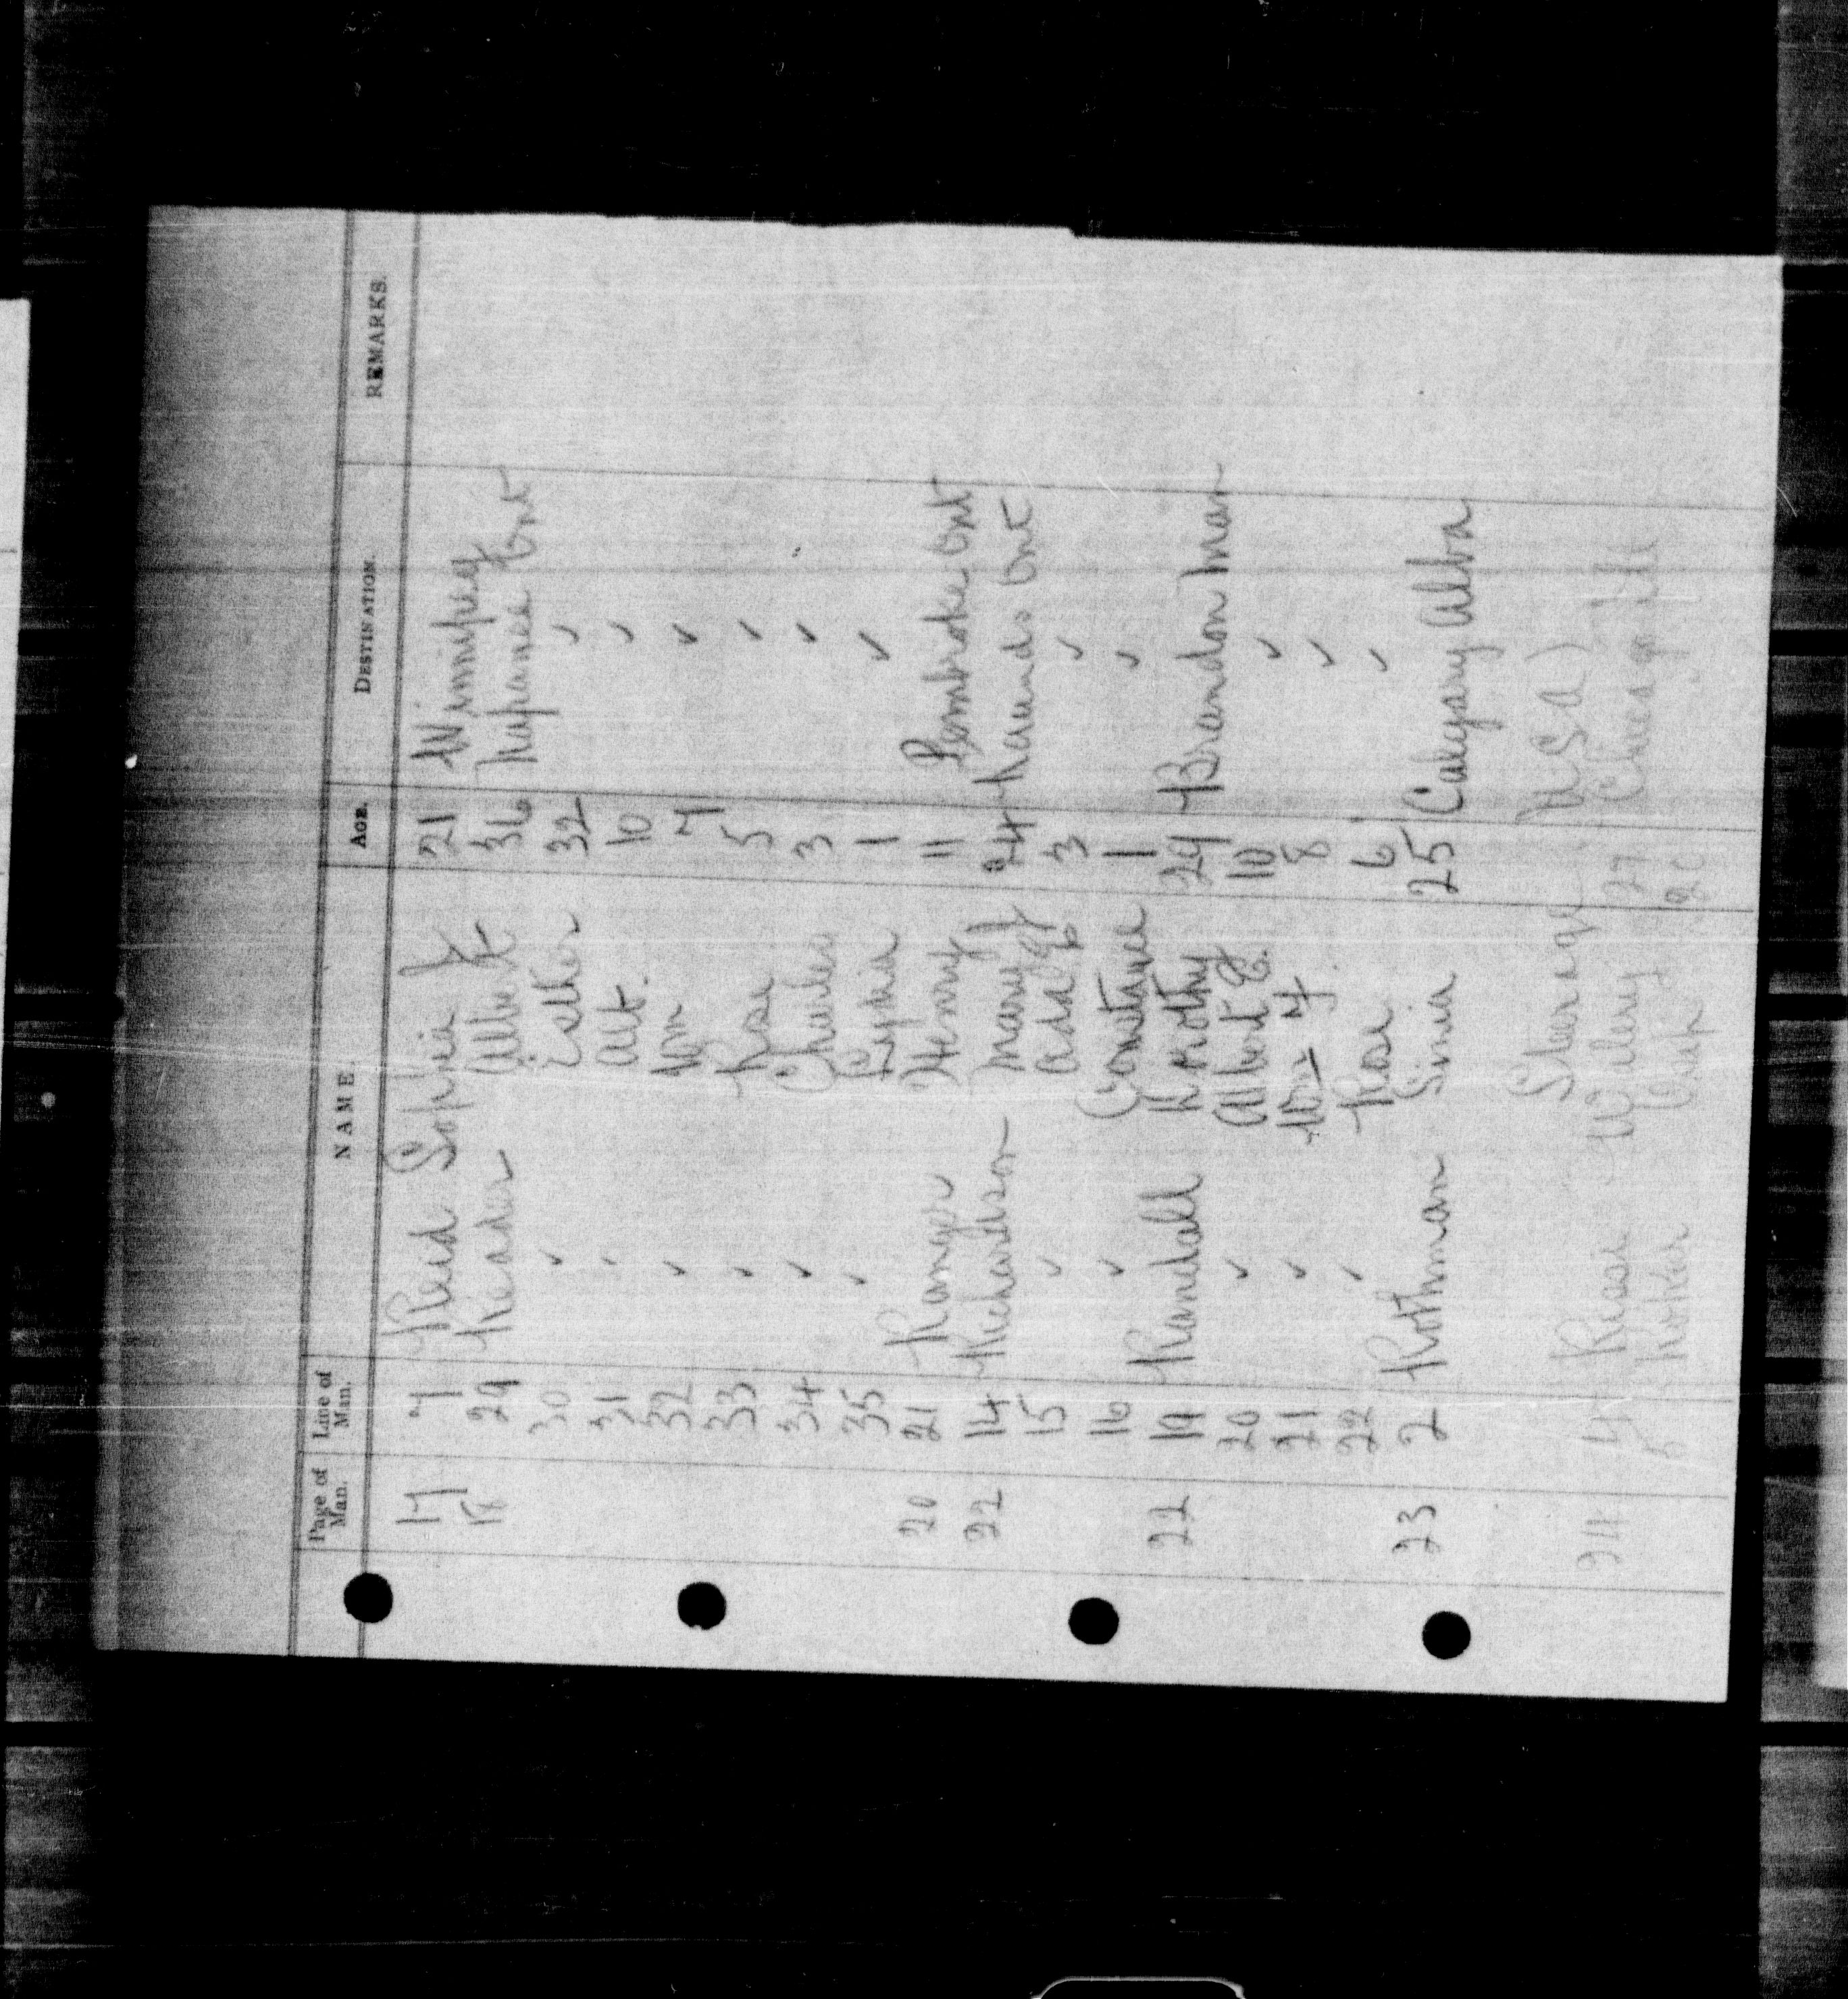 Page of Man. Line of Man. NAME. AGE. DESTINATION. REMARKS.
17 7 Reid Sophia 21 Winnipeg
18 29 Reader Albert 36 Napanee Ont
30 ✓ Esther 32 ✓
31 ✓ Alt. 10 ✓
32 ✓ Wm 7 ✓
33 ✓ Rose 5 ✓
34 ✓ Charles 3 ✓
35 ✓ Lydia 1 ✓
20 21 Ranger Henry 11 Pembroke Ont
22 14 Richardson Mary J 24 Ont
15 ✓ Ada 3 ✓
16 ✓ Constance 1 ✓
22 19 Randall Dorothy 29 Brandon Man
20 ✓ Albert E. 10 ✓
21 ✓ Wm F. 8 ✓
22 ✓ Rose 6 ✓
23 2 Rothman Simia 25 Calgary Alba
Steerage (USA)
24 4 27 Chicago Ill
5